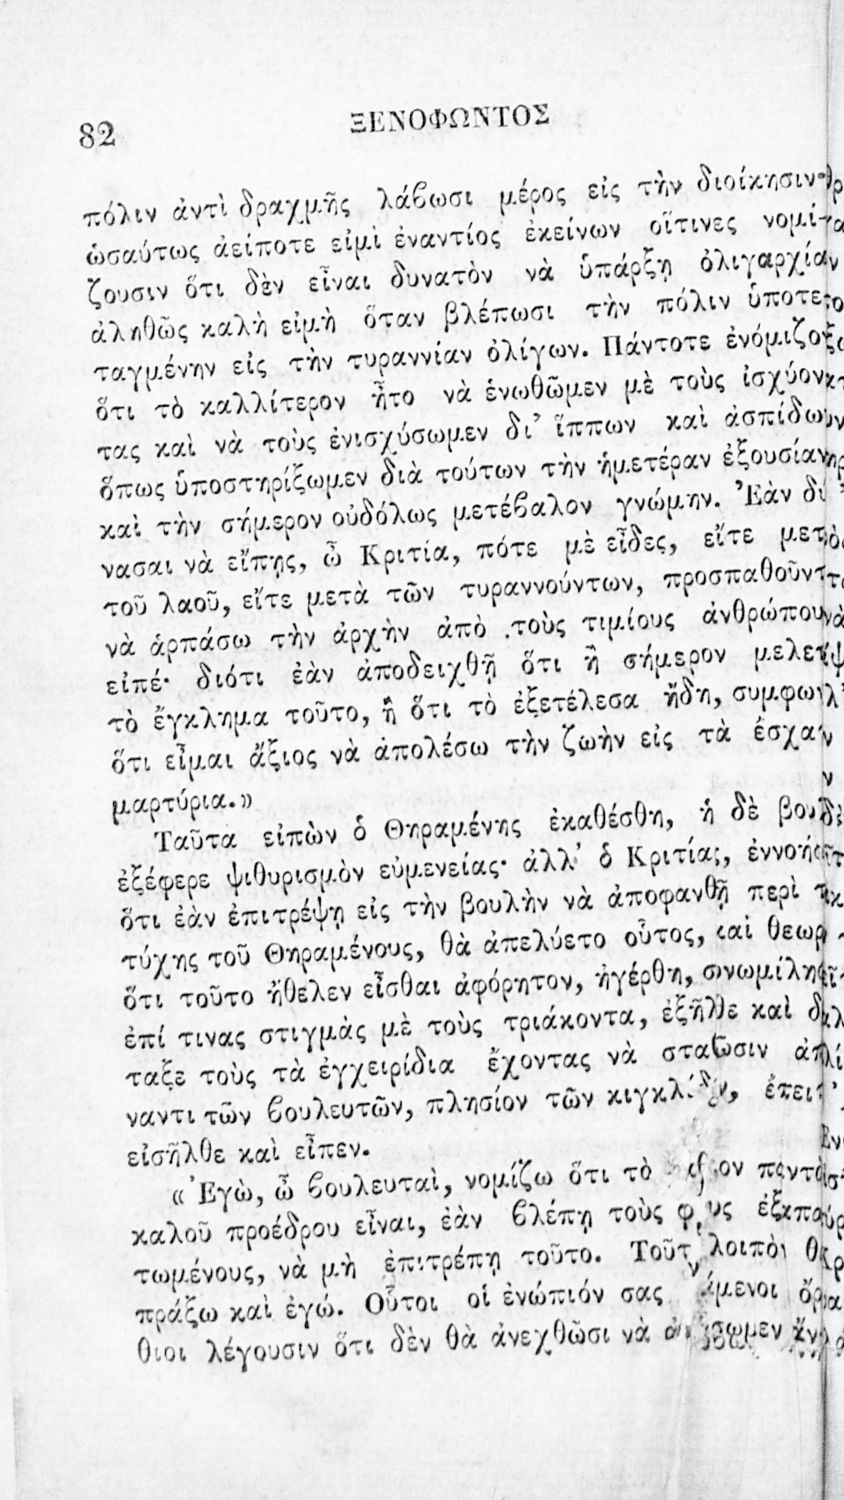 82 ΞΕΝΟΦΩΝΤΟΣ
πόλιν ἀντὶ δραχμῆς λάβωσι μέρος εἰς τὴν διοίκησιν·
ὡσαύτως ἀείποτε εἰμὶ ἐναντίος ἐκείνων οἵτινες νομί-
ζουσιν ὅτι δὲν εἶναι δυνατὸν νὰ ὑπάρξῃ ὀλιγαρχία
ἀληθῶς καλὴ εἰμὴ ὅταν βλέπωσι τὴν πόλιν ὑποτε-
ταγμένην εἰς τὴν τυραννίαν ὀλίγων. Πάντοτε ἐνόμιζον
ὅτι τὸ καλλίτερον ἦτο νὰ ἑνωθῶμεν μὲ τοὺς ἰσχύον-
τας καὶ νὰ τοὺς ἐνισχύσωμεν δι’ ἵππων καὶ ἀσπίδων
ὅπως ὑποστηρίξωμεν διὰ τούτων τὴν ἡμετέραν ἐξουσίαν
καὶ τὴν σήμερον οὐδόλως μετέβαλον γνώμην. Ἐὰν δύ
νασαι νὰ εἴπῃς, ὦ Κριτία, πότε μὲ εἶδες, εἴτε μετὰ
τοῦ λαοῦ, εἴτε μετὰ τῶν τυραννούντων, προσπαθοῦντ
νὰ ἁρπάσω τὴν ἀρχὴν ἀπὸ τοὺς τιμίους ἀνθρώπου
εἰπέ· διότι ἐὰν ἀποδειχθῇ ὅτι ἢ σήμερον μελε
τὸ ἔγκλημα τοῦτο, ἢ ὅτι τὸ ἐξετέλεσα ἤδη, συμφω
ὅτι εἶμαι ἄξιος νὰ ἀπολέσω τὴν ζωὴν εἰς τὰ ἔσχα
μαρτύρια.»
Ταῦτα εἰπὼν ὁ Θηραμένης ἐκαθέσθη, ἡ δὲ βου
ἐξέφερε ψιθυρισμὸν εὐμενείας· ἀλλ’ ὁ Κριτίας, ἐννοή
ὅτι ἐὰν ἐπιτρέψῃ εἰς τὴν βουλὴν νὰ ἀποφανθῇ περὶ
τύχης τοῦ Θηραμένους, θὰ ἀπελύετο οὗτος, καὶ θεωρ
ὅτι τοῦτο ἤθελεν εἶσθαι ἀφόρητον, ἠγέρθη, συνωμίλη
ἐπί τινας στιγμὰς μὲ τοὺς τριάκοντα, ἐξῆλθε καὶ δ
ταξε τοὺς τὰ ἐγχειρίδια ἔχοντας νὰ σταθῶσιν ἀπ
ναντι τῶν βουλευτῶν, πλησίον τῶν κιγκλίδων, ἔπει
εἰσῆλθε καὶ εἶπεν.
«Ἐγὼ, ὦ βουλευταὶ, νομίζω ὅτι τὸ παντὸ
καλοῦ προέδρου εἶναι, ἐὰν βλέπῃ τοὺς ἐξαπα
τωμένους, νὰ μὴ ἐπιτρέπῃ τοῦτο. λοιπὸν θ
πράξω καὶ ἐγώ. Οὗτοι οἱ ἐνώπιόν σας
θιοι λέγουσιν ὅτι δὲν θὰ ἀνεχθῶσι νὰ